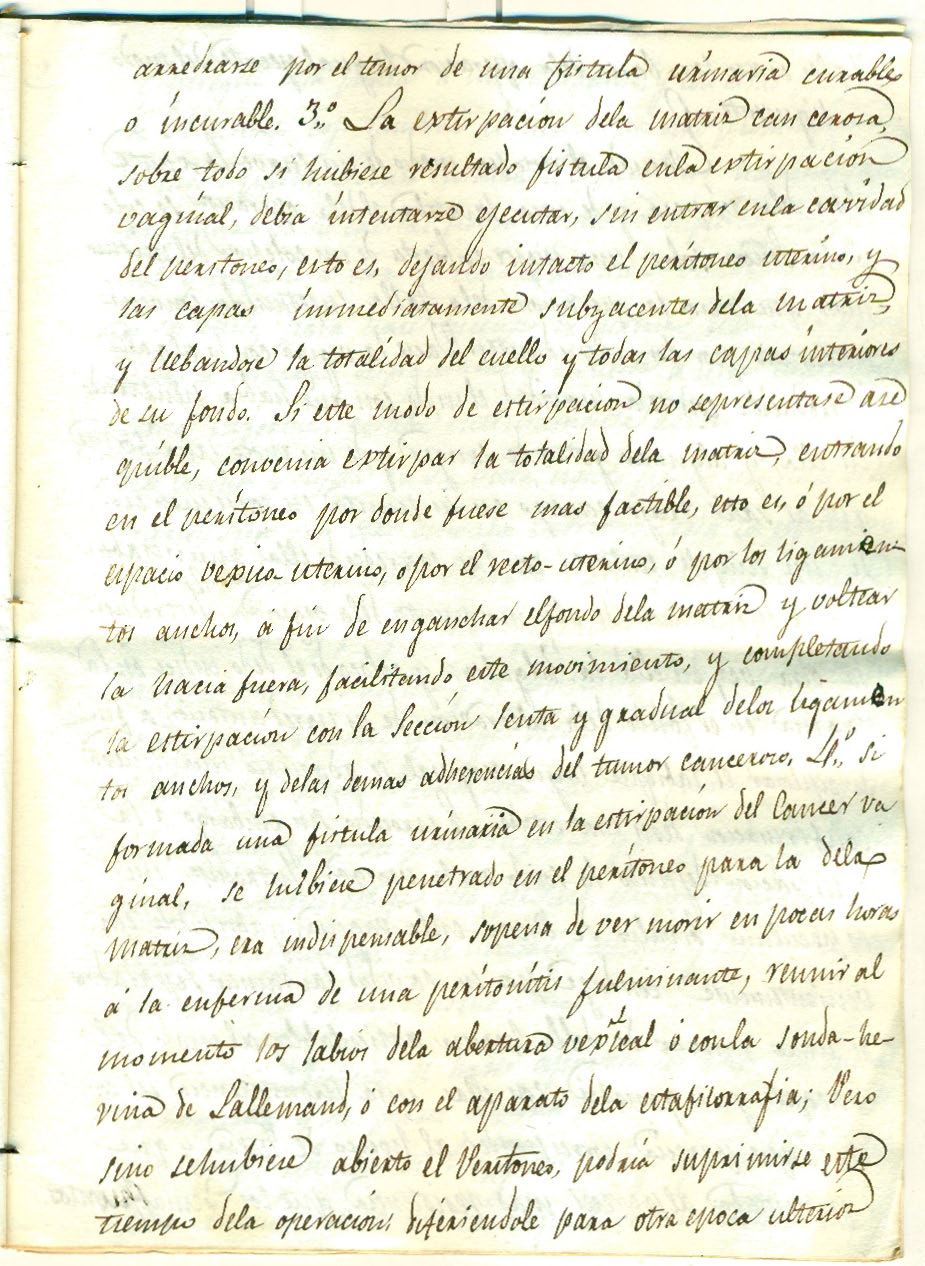 arredrarse por el temor de una fistula urinaria curable
o incurable. 3.º La extirpación dela matriz cancerosa,
sobre todo si hubiese resultado fistula enla extirpación
vaginal, debia intentarse ejecutar, sin entrar enla cavidad
del peritoneo, esto es, dejando intacto el peritoneo uterino, y
las capas immediatamente subyacentes dela matriz,
y llebandose la totalidad del cuello y todas las capas interiores
de su fondo. Si este modo de estirpacion no sepresentase ase
quible, convenia extirpar la totalidad dela matriz, entrando
en el peritoneo por donde fuese mas factible, esto es, ó por el
espacio vexico-uterino, o por el recto-uterino, ó por los ligamen-
tos anchos, á fin de enganchar elfondo dela matriz y voltear
la hacia fuera, facilitando este movimiento, y completando
la estirpación con la Sección lenta y gradual delos ligamen
tos anchos, y delas demas adherencias del tumor canceroso. 4.º si
formada una fistula urinaria en la estirpación del Cancer va
ginal, se hubiese penetrado en el peritoneo para la dela
matriz, era indispensable, sopena de ver morir en pocas horas
á la enferma de una peritonitis fulminante, reunir al
momento los labios dela abertura vexical ó conla sonda-he-
vina de Lallemand, ó con el aparato dela estafilorrafia; Pero
sino sehubiese abierto el Peritoneo, podria suprimirse este
tiempo dela operación, difiriendole para otra epoca ulterior